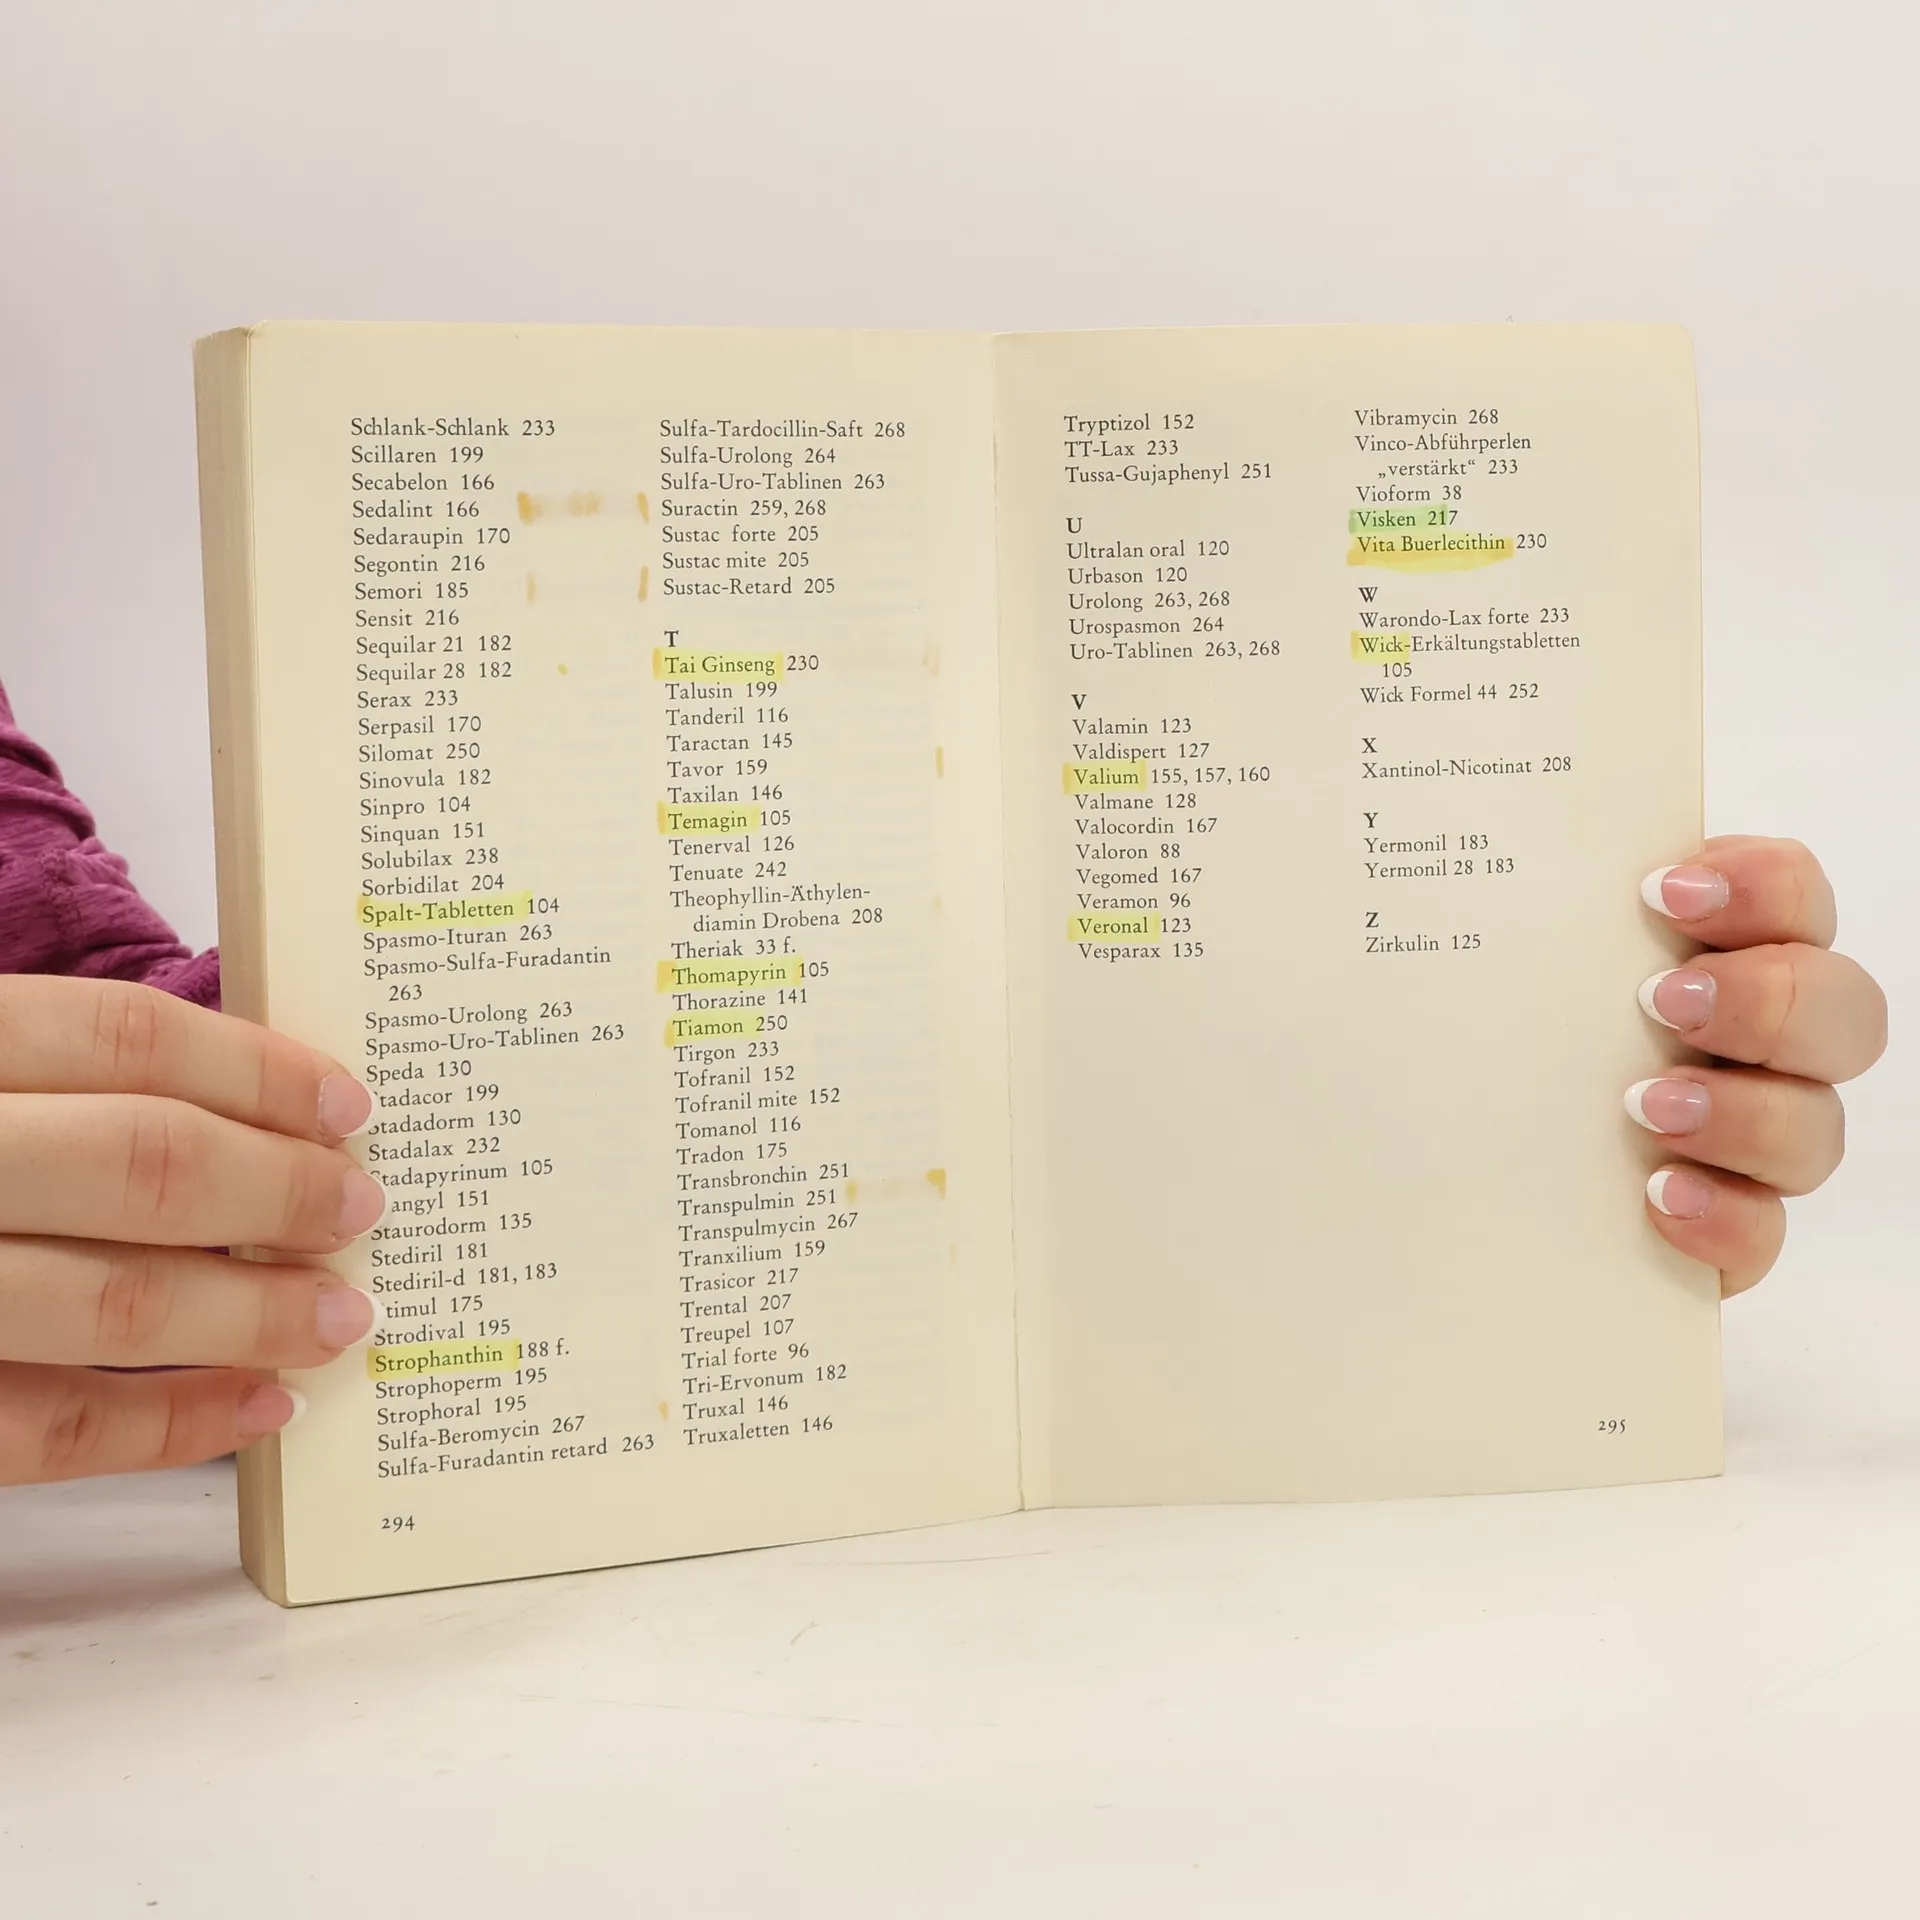 Schlank-Schlank 233
Scillaren 199
Secabelon 166
Sedalint 166
Sedaraupin 170
Segontin 216
Semori 185
Sensit 216
Sequilar 21 182
Sequilar 28 182
Serax 233
Serpasil 170
Silomat 250
Sinovula 182
Sinpro 104
Sinquan 151
Solubilax 238
Sorbidilat 204
Spalt-Tabletten 104
Spasmo-Ituran 263
Spasmo-Sulfa-Furadantin
263
Spasmo-Urolong 263
Spasmo-Uro-Tablinen 263
Speda 130
tadacor 199
Stadadorm 130
Stadalax 232
Stadapyrinum 105
angyl 151
Staurodorm 135
Stediril 181
Stediril-d 181, 183
timul 175
Strodival 195
Strophanthin 188 f.
Strophoperm 195
Strophoral 195
Sulfa-Beromycin 267
Sulfa-Furadantin retard 263
294
Sulfa-Tardocillin-Saft 268
Sulfa-Urolong 264
Sulfa-Uro-Tablinen 263
Suractin 259, 268
Sustac forte 205
Sustac mite 205
Sustac-Retard 205
T
Tai Ginseng 230
Talusin 199
Tanderil 116
Taractan 145
Tavor 159
Taxilan 146
Temagin 105
Tenerval 126
Tenuate 242
Theophyllin-Äthylen-
diamin Drobena 208
Theriak 33 f.
Thomapyrin 105
Thorazine 141
Tiamon 250
Tirgon 233
Tofranil 152
Tofranil mite 152
Tomanol 116
Tradon 175
Transbronchin 251
Transpulmin 251
Transpulmycin 267
Tranxilium 159
Trasicor 217
Trental 207
Treupel 107
Trial forte 96
Tri-Ervonum 182
Truxal 146
Truxaletten 146
Tryptizol 152
TT-Lax 233
Tussa-Gujaphenyl 251
U
Ultralan oral 120
Urbason 120
Urolong 263, 268
Urospasmon 264
Uro-Tablinen 263, 268
V
Valamin 123
Valdispert 127
Valium 155, 157, 160
Valmane 128
Valocordin 167
Valoron 88
Vegomed 167
Veramon 96
Veronal 123
Vesparax 135
Vibramycin 268
Vinco-Abführperlen
„verstärkt“ 233
Vioform 38
Visken 217
Vita Buerlecithin 230
W
Warondo-Lax forte 233
Wick-Erkältungstabletten
105
Wick Formel 44 252
X
Xantinol-Nicotinat 208
Y
Yermonil 183
Yermonil 28 183
Z
Zirkulin 125
295